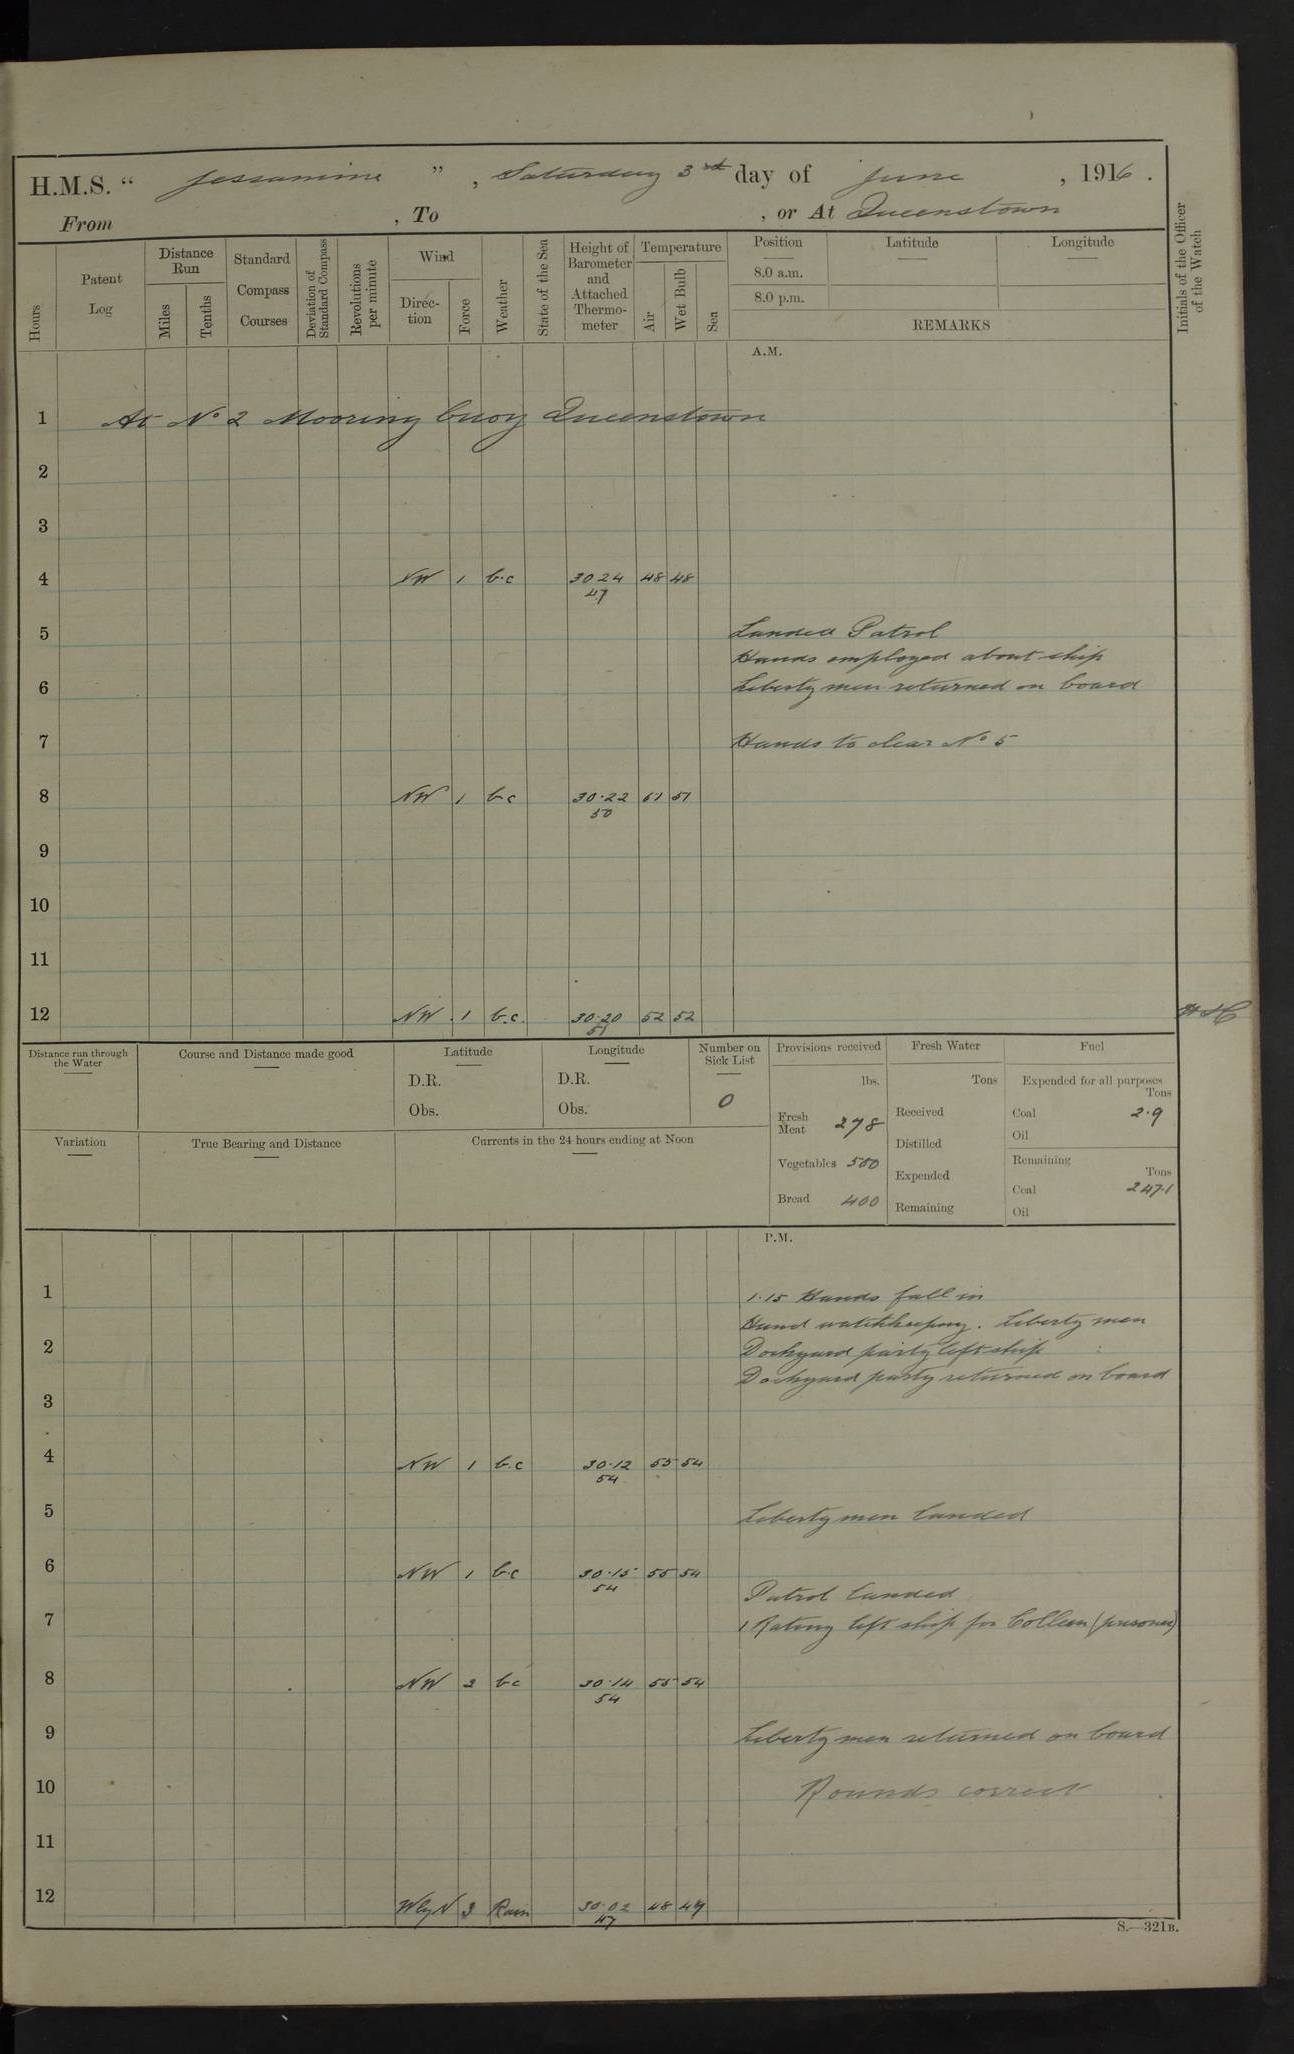 H.M.S. “ Jessamine ” , Saturday 3rd day of June , 1916 .
From , To , or At Queenstown
Hours
Patent Log
Distance Run
Miles
Tenths
Standard Compass Courses
Deviation of Standard Compass
Revolutions per minute
Wind
Direction
Force
Weather
State of the Sea
Height of Barometer and Attached Thermometer
Temperature
Air
Wet Bulb
Sea
Position Latitude Longitude
8.0 a.m.
8.0 p.m.
REMARKS
Initials of the Officer of the Watch
A.M.
1 At No 2 Mooring buoy Queenstown
2
3
4 NW 1 b.c 30.24 48 48
47
5 Landed Patrol
Hands employed about ship
6 Liberty men returned on board
7 Hands to clear No 5
8 NW 1 b.c 30.22 51 51
50
9
10
11
12 NW 1 b.c. 30.20 52 52
51
Distance run through the Water
Course and Distance made good
Latitude
D.R.
Obs.
Longitude
D.R.
Obs.
Number on Sick List
0
Provisions received
lbs.
Fresh Meat 278
Vegetables 500
Bread 400
Fresh Water
Tons
Received
Distilled
Expended
Remaining
Fuel
Expended for all purposes
Tons
Coal 2.9
Oil
Remaining
Tons
Coal 247.1
Oil
Variation
True Bearing and Distance
Currents in the 24 hours ending at Noon
P.M.
1 1.15 Hands fall in
Hand watchkeeping. Liberty men
2 Dockyard party left ship
Dockyard party returned on board
3
4 NW 1 b.c 30.12 55 54
54
5 Liberty men landed
6 NW 1 b.c 30.15 55 54
54
Patrol landed
7 1 Rating left ship for Colleen (prisoner)
8 NW 2 bc 30.14 55 54
54
9 Liberty men returned on board
10 Rounds correct
11
12 WbyN 3 Rain 30.02 48 49
47
S.—321B.